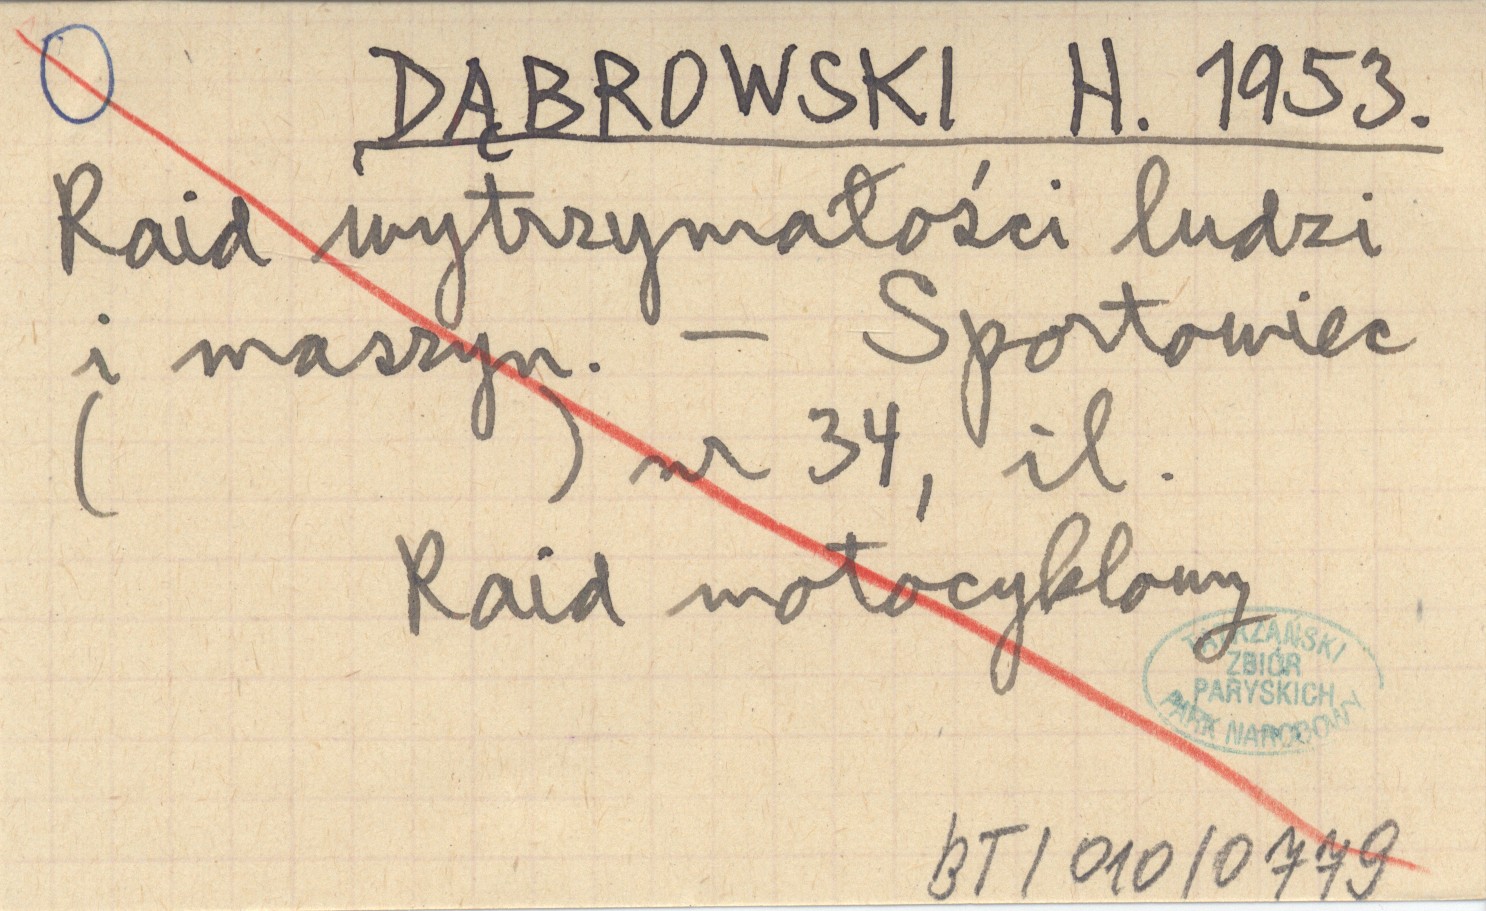 DĄBROWSKI H. 1953.
Raid wytrzymałości ludzi
i maszyn. – Sportowiec
( ) nr 34, il.
Raid motocyklowy
TATRZAŃSKI
ZBIÓR
PARYSKICH
PARK NARODOWY
BT/010/0779